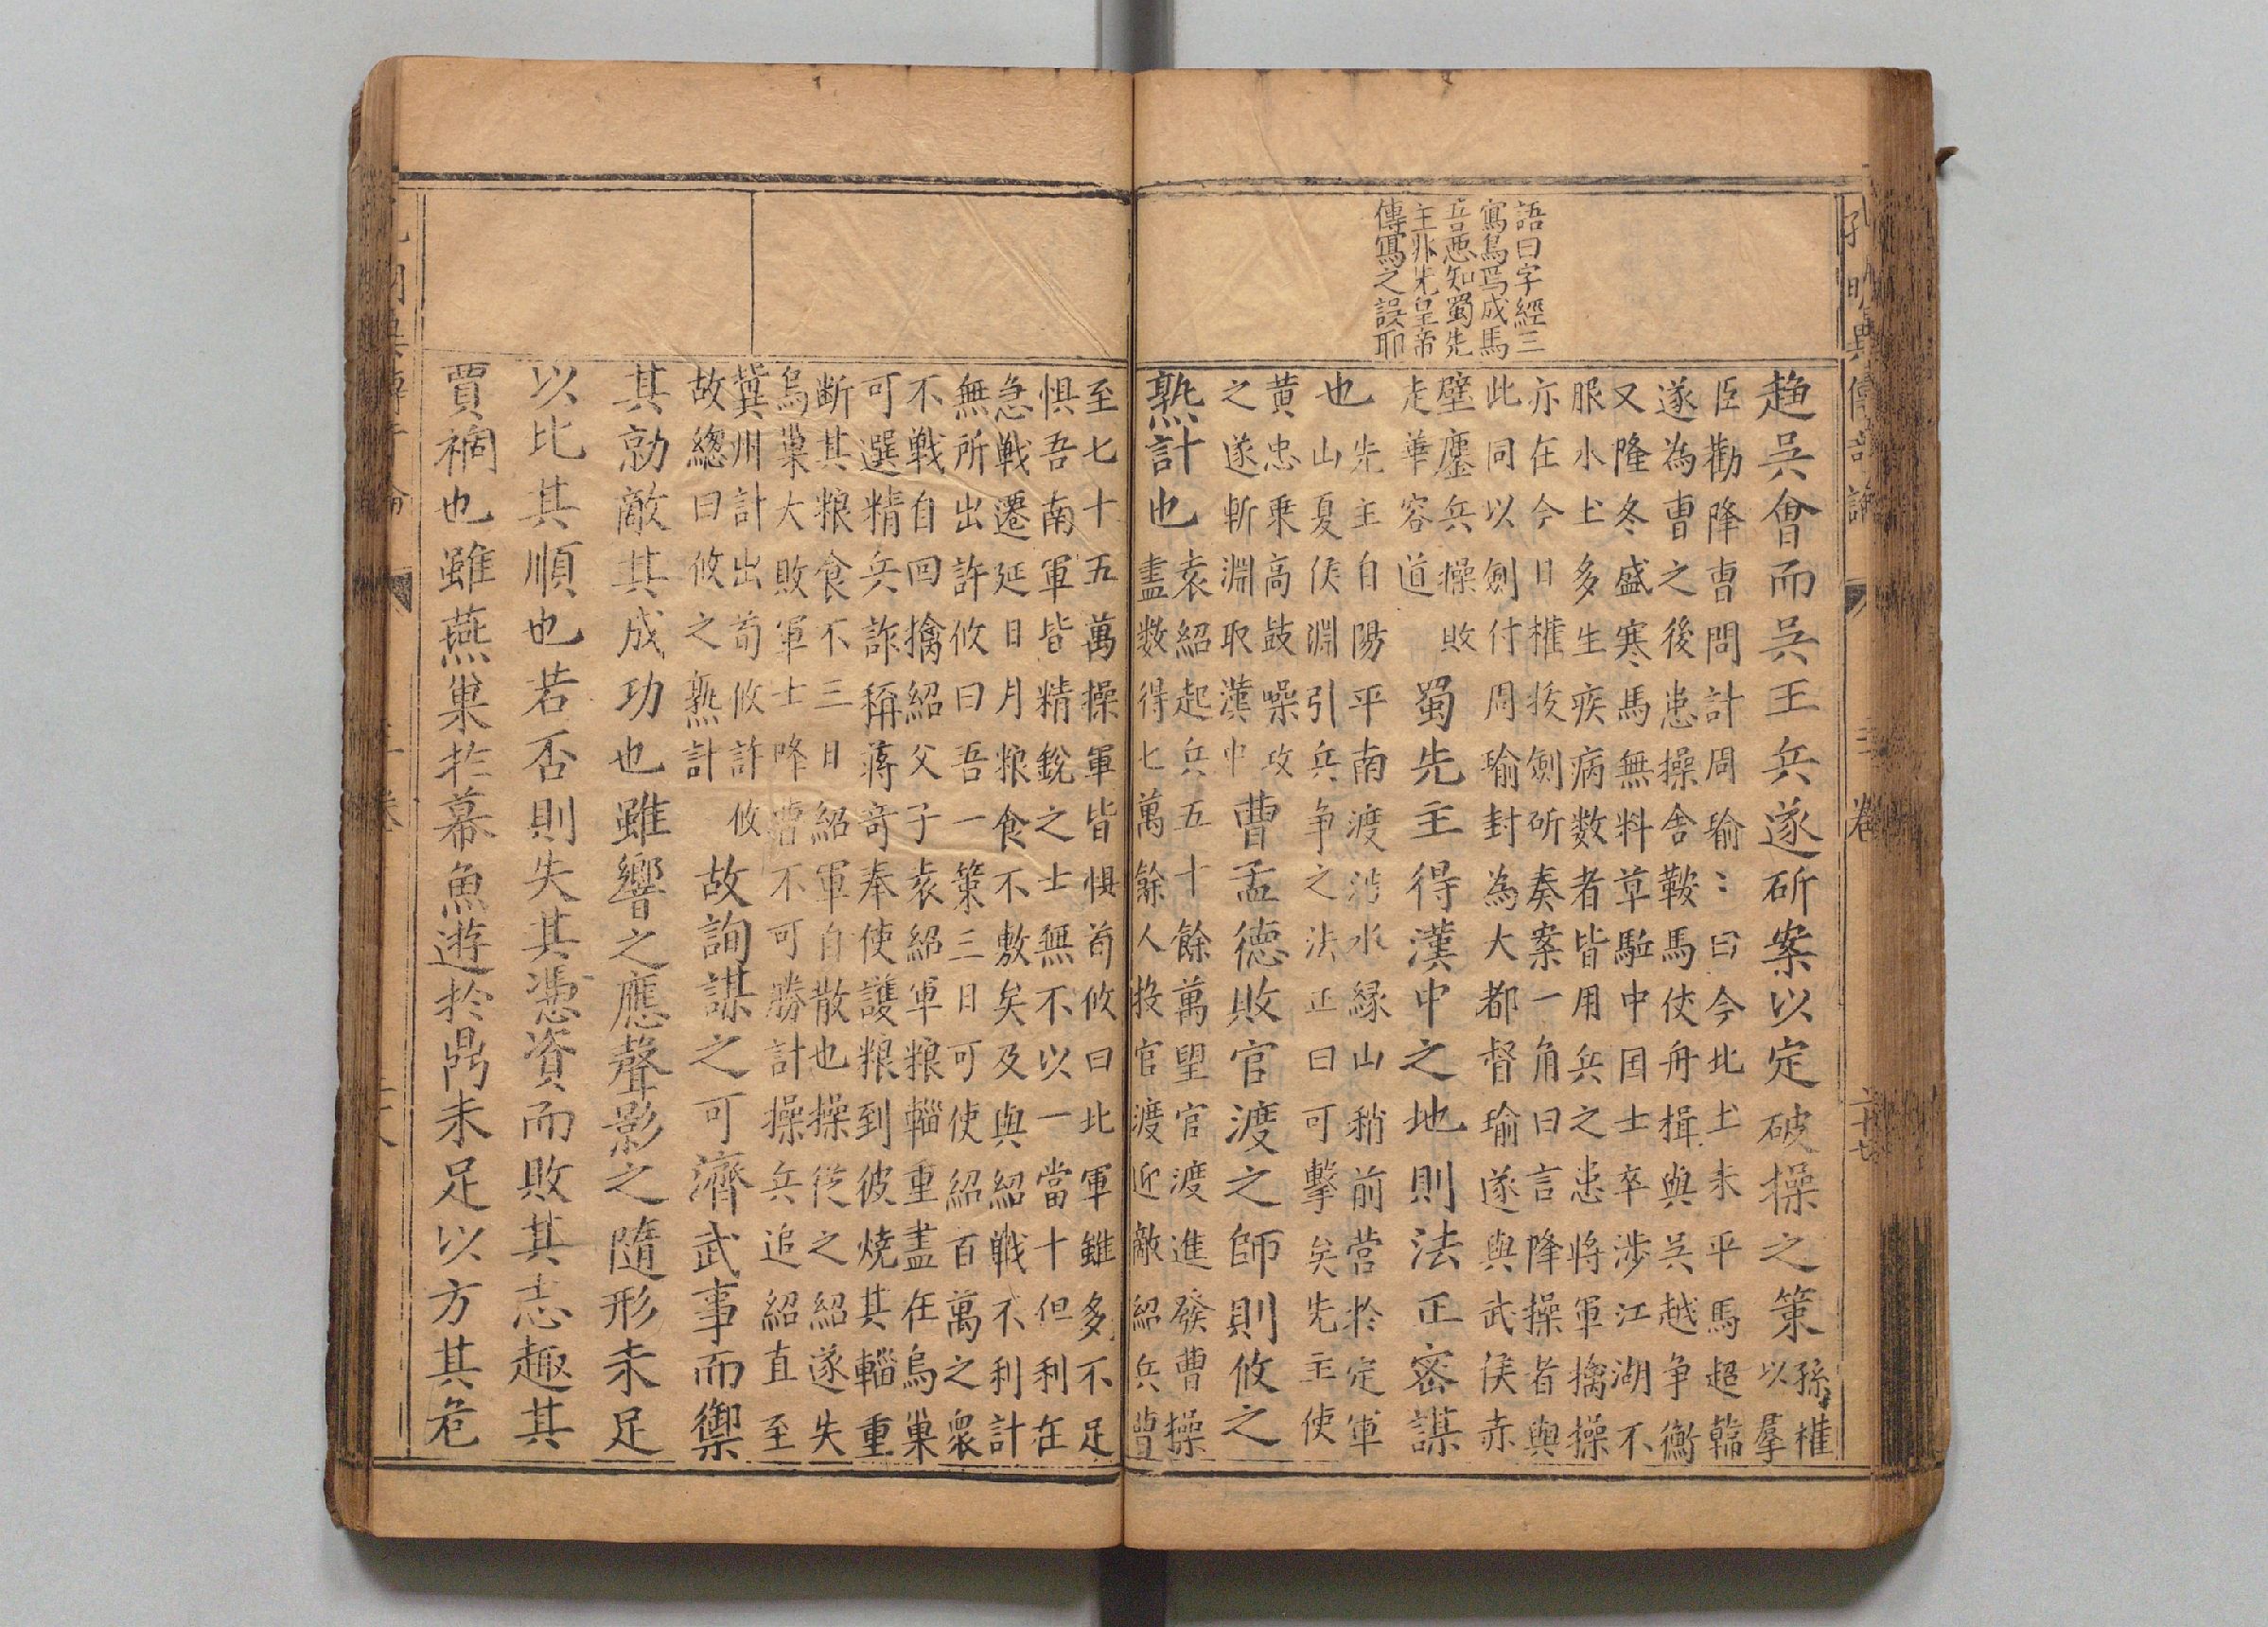 孔明異傳奇論 三卷 二十七
語曰字經三
寫烏焉成馬
吾惡知蜀先
主非先皇帝
傳寫之誤耶
趋吳會而吳王兵遂斫案以定破操之策孫權
以羣
臣勸降曺問計周瑜〻曰今北土未平馬超韓
遂為曺之後患操舍鞍馬使舟揖與吳越争衡
又隆冬盛寒馬無料草駈中囯士卒涉江湖不
服水土多生疾病数者皆用兵之患将軍擒操
亦在今日權拔劍斫奏案一角曰言降操者與
此同以劍付周瑜封為大都督瑜遂與武侯赤
壁鏖兵操敗
走華容道
蜀先主得漢中之地則法正密謀
也先主自陽平南渡沔水縁山稍前营於定軍
山夏侯淵引兵争之法正曰可擊矣先主使
黄忠乗高鼓噪攻
之遂斬淵取漢中
曹孟德敗官渡之師則攸之
熟計也袁紹起兵五十餘萬望官渡進發曹操
盡数得七萬餘人投官渡迎敵紹兵曹
至七十五萬操軍皆惧荀攸曰北軍雖多不足
惧吾南軍皆精銳之士無不以一當十但利在
急戰遷延日月粮食不敷矣及與紹戰不利計
無所出許攸曰吾一策三日可使紹百萬之衆
不戰自回擒紹父子袁紹軍粮輜重盡在烏巢
可選精兵詐稱蒋竒奉使護粮到彼燒其輜重
断其粮食不三日紹軍自散也操従之紹遂失
烏巢大敗軍士降曹不可勝計操兵追紹直至
冀州計出荀攸許攸
故總曰攸之熟計
故詢謀之可濟武事而禦
其勍敵其成功也雖響之應聲影之隨形未足
以比其順也若否則失其憑資而敗其志趣其
賈禍也雖燕巢於幕魚遊於鼎未足以方其危